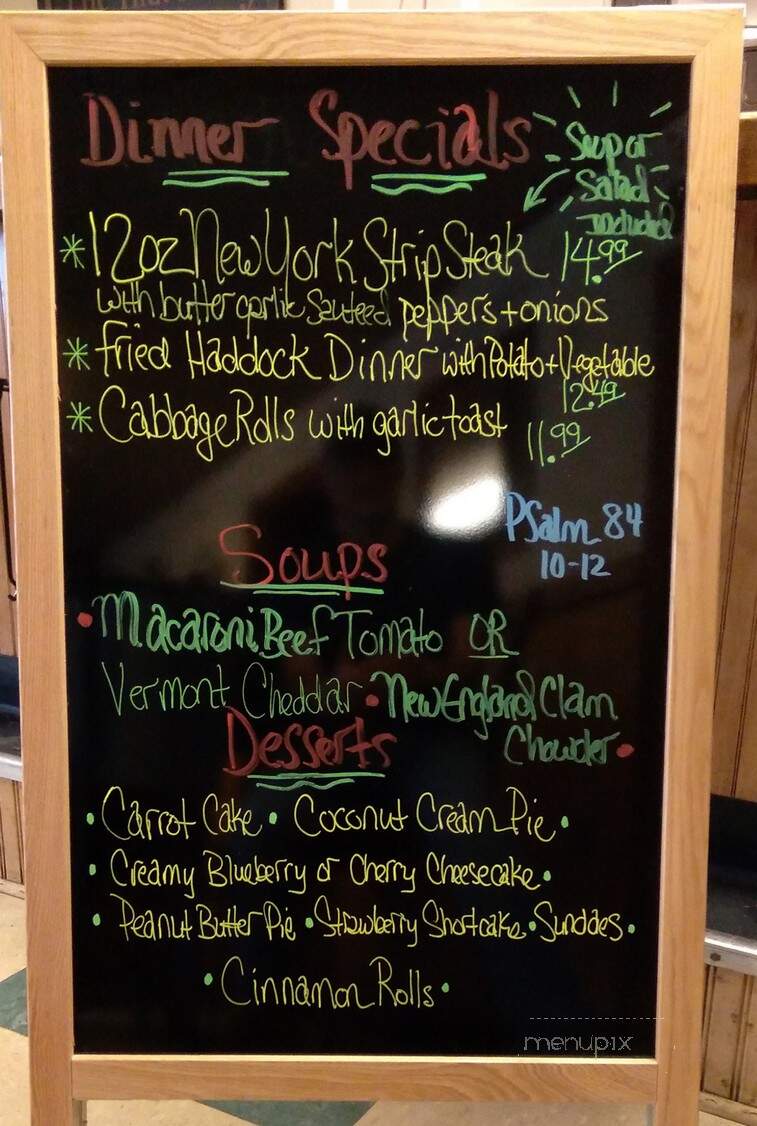 Dinner Specials
Soup or
Salad
Included
*12oz New York Strip Steak 14.99
with butter garlic Sauteed peppers + onions
*Fried Haddock Dinner with Potato + Vegetable
12.49
*Cabbage Rolls with garlic toast 11.99
Psalm 84
10-12
Soups
•Macaroni Beef Tomato OR
Vermont Cheddar •New England Clam
Chowder•
Desserts
•Carrot Cake• Coconut Cream Pie•
•Creamy Blueberry or Cherry Cheesecake•
•Peanut Butter Pie •Strawberry Shortcake •Sundaes•
•Cinnamon Rolls•
menupix